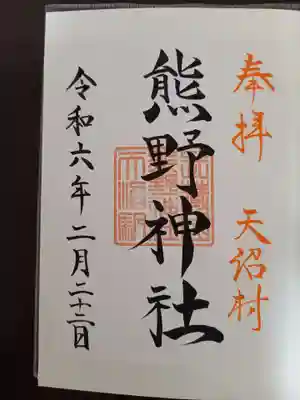 奉拝　天沼村
熊野神社
令和六年二月二十三日